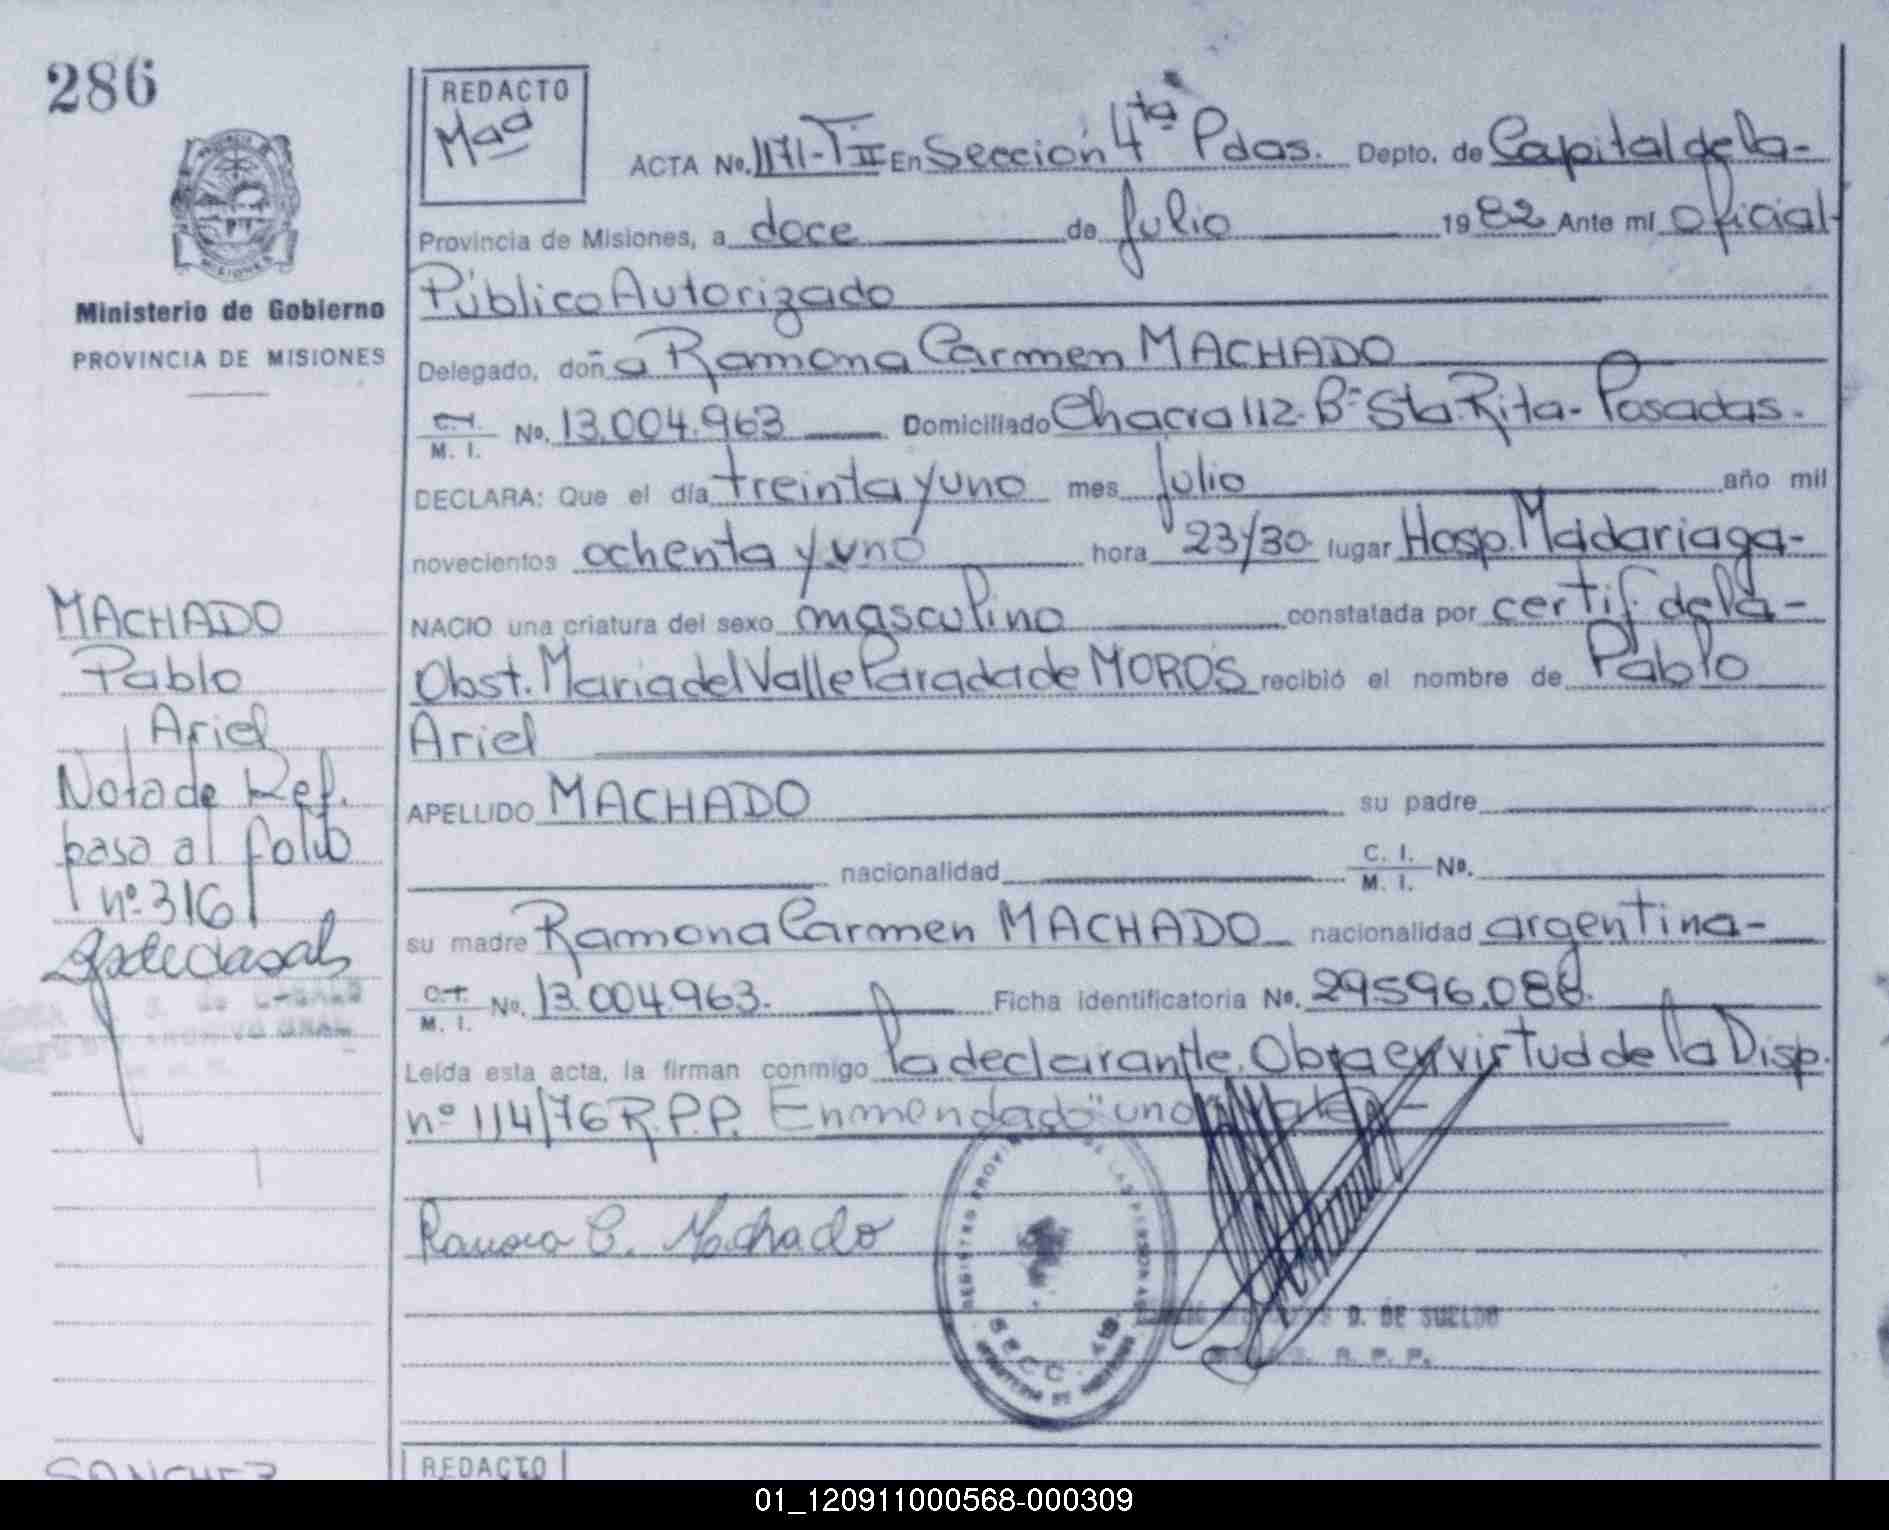 286
REDACTO
Maa
PROVINCIA DE MISIONES
Ministerio de Gobierno
PROVINCIA DE MISIONES
ACTA No. 1171-T II En Sección 4ta Pdas. Depto. de Capital de la-
Provincia de Misiones, a doce de Julio 1982 Ante mí oficial-
Público Autorizado
Delegado, doña Ramona Carmen MACHADO
C. I. M. I. No. 13.004.963 Domiciliado Chacra 112- Bº Sta. Rita- Posadas.
DECLARA: Que el día treinta y uno mes Julio año mil
novecientos ochenta y uno hora 23/30 lugar Hosp. Madariaga-
NACIO una criatura del sexo masculino constatada por certif. de la-
Obst. Maria del Valle Parada de MOROS recibió el nombre de Pablo
Ariel
APELLIDO MACHADO su padre
nacionalidad C. I. M. I. No.
su madre Ramona Carmen MACHADO nacionalidad argentina-
C. I. M. I. No. 13.004.963. Ficha identificatoria No. 29.596.088.
Leída esta acta, la firman conmigo la declarante. Obra en virtud de la Disp.
nº 114/76 R.P.P. Enmendado "uno"
Ramona C. Machado
REGISTRO PROVINCIAL DE LAS PERSONAS
SECC. 4ta
D. DE SUELDO
R. P. P.
MACHADO
Pablo
Ariel
Nota de Ref.
paso al folio
nº 316
de CASALS
ARCHIVO GRAL.
SANCHEZ
REDACTO
01_120911000568-000309